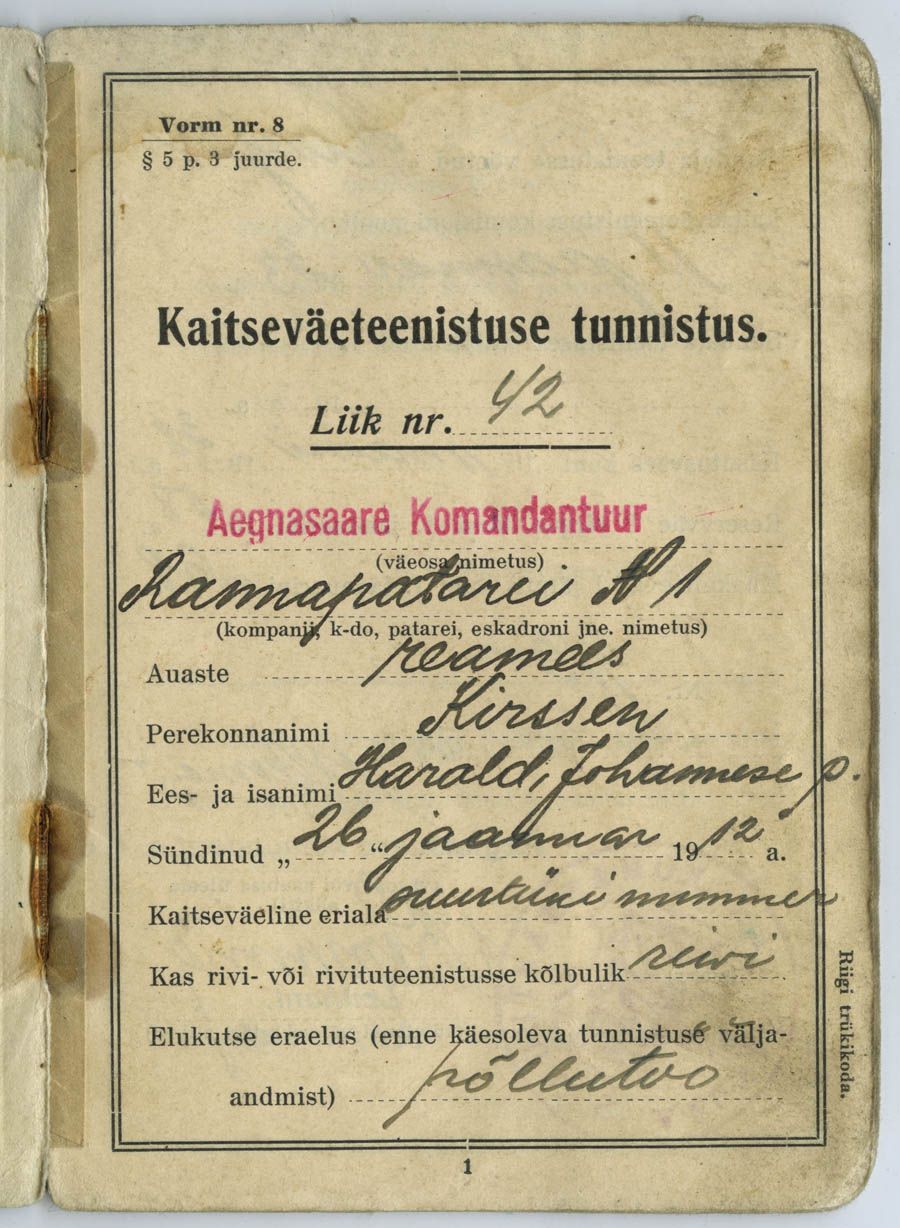 Vorm nr. 8
§ 5 p. 3 juurde.
Kaitseväeteenistuse tunnistus.
Liik nr. 42
Aegnasaare Komandantuur
(väeosa nimetus)
Rannapatarei № 1
(kompanii, k-do, patarei, eskadroni jne. nimetus)
Auaste reamees
Perekonnanimi Kirssen
Ees- ja isanimi Harald, Johannese p.
Sündinud „26“ jaanuar 1912 a.
Kaitseväeline eriala suurtüki nummer
Kas rivi- või rivituteenistusse kõlbulik reivi
Elukutse eraelus (enne käesoleva tunnistuse välja-
andmist) põllutöö
Riigi trükikoda.
1